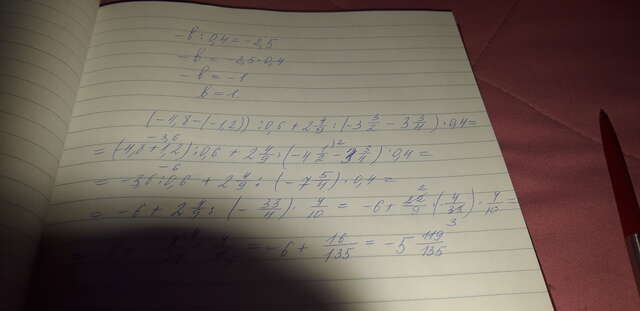 -b : 0,4 = -2,5
-b = -2,5 · 0,4
-b = -1
b = 1
(-4,8-(-1,2)) : 0,6 + 2 4/9 : (-3 3/2 - 3 3/4) · 0,4 =
-3,6
= (-4,8+1,2) : 0,6 + 2 4/9 : (-4 1/2 - 3 3/4) · 0,4 =
-6
= -3,6 : 0,6 + 2 4/9 : (-7 5/4) · 0,4 =
= -6 + 2 4/9 : (-33/4) · 4/10 = -6 + 22/9 · (4/33) · 4/10 =
= -6 + 16/135 = -5 119/135